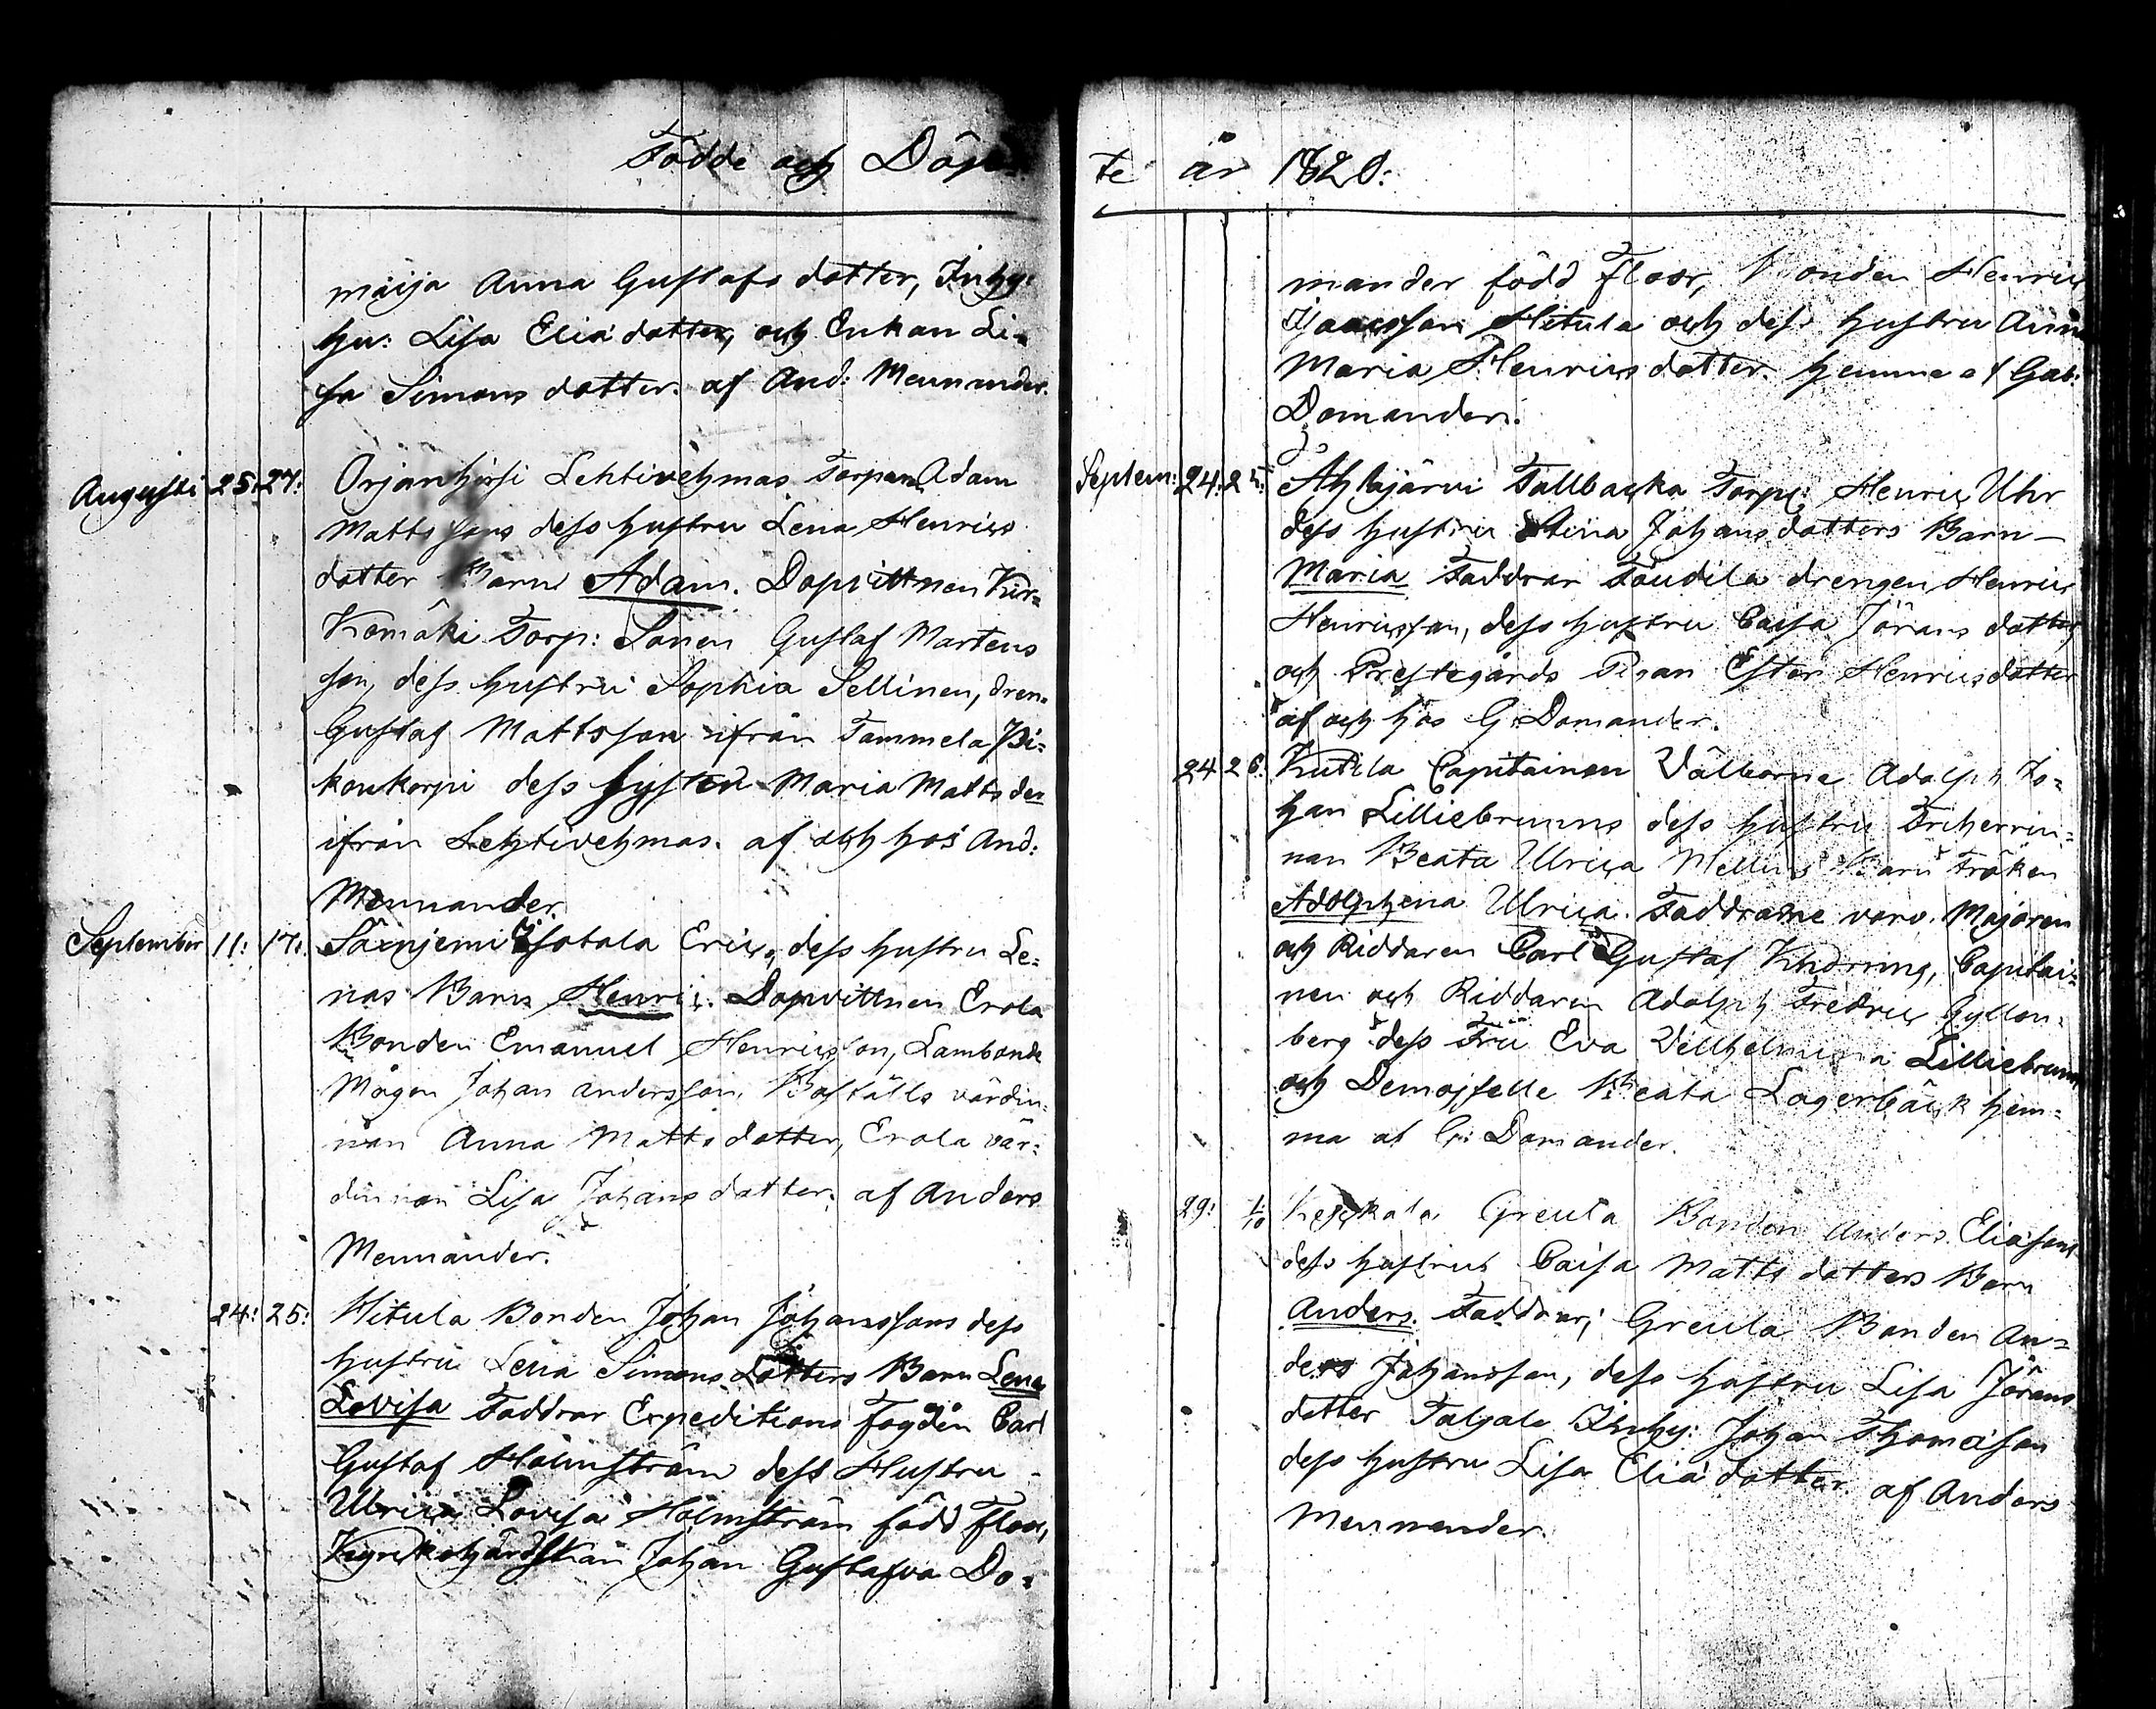 Födde och Döp=
maija Anna Gustafs dotter, Inhy:
hu: Lisa Elia dotter, och Enkan Li=
sa Simons dotter. af And: Mennander.
Augusti 25: 27: Örjänhjrsi Lehtivehmas Torparn Adam
Matts sons dess hustru Lena Henrics
dotter Barn Adam. Dopvittnen Kir=
Komäki Torp: Sonen Gustaf Martens
son, dess hustru Sophia Sellinen, dren.
Gustaf Mattsson ifrån Tammela Pi=
konkorpi dess syster Maria Matts der
ifrån Lehtivehmas. af och hos And:
Mennander.
September 11: 17: Säinjemi Isotala Eric, dess hustru Le=
nas Barn Henric. Dopvittnen Erola
Bonden Emanuel Henricsson, Sambonde
Mågen Johan andersson, Boställs värdin=
nan Anna Matts dotter, Erola vär=
dinnan Lisa Johans dotter; af Anders
Mennander.
24: 25: Hitula Bonden Johan Johanssons dess
hustru Lena Simons dotters Barn Lena
Lovisa Faddrar Expeditions Fogden Carl
Gustaf Holmström dess Hustru
Ulrica Lovisa Holmström född Floor,
Johan Gustafva Do=
te år 1820:
mander född Floor, Bonden Henric
Isaacsson Hitula och dess hustru Anna
Maria Henrics dotter. hemma af Gab:
Domander.
Septem: 24: 25: Ahlajärvi Tallbacka Torp: Henric Uhr
dess hustru Stina Johans dotters Barn
Maria Faddrar Toudila drengen Henric
Henricsson, dess hustru Caisa Jörans dotter
och Prestegårds Pigan Ester Henricsdotter
af och hos G: Domander.
24 26: Kutila Capitainen Välborne Adolph Jo=
han Lilliebrunns dess hustru Friherrin=
nan Beata Ulrica Mellins Barn Fröken
Adolphena Ulrica. Faddrarne voro. Majoren
och Riddaren Carl Gustaf Knorring, Capitai=
nen och Riddaren Adolph Fredric Gyllen=
berg dess Fru Eva Vilhelmina Lilliebrunn
och Demoiselle Beata Lagerbäck hem=
ma af G: Domander.
29: 1/10 Greula Bonden Anders Eliasons
dess hustrus Caisa Matts dotters Barn
Anders. Faddrar; Greula Bonden An=
ders Johansson, dess hustru Lisa Jörans
dotter Taljala Inhy: Johan Thomasson
dess hustru Lisa Elia dotter. af Anders
Mennander.